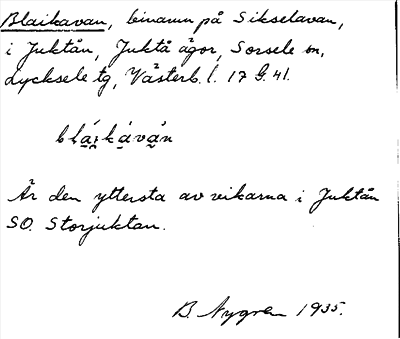 Blaikavan, binamn på Sikselavan,
i Juktån, Juktå ägor, Sorsele sn,
Lycksele tg, Västerb. l. 17 G. 41.
Är den yttersta av vikarna i Juktån
SO. Storjuktan.
B. Nygren 1935.